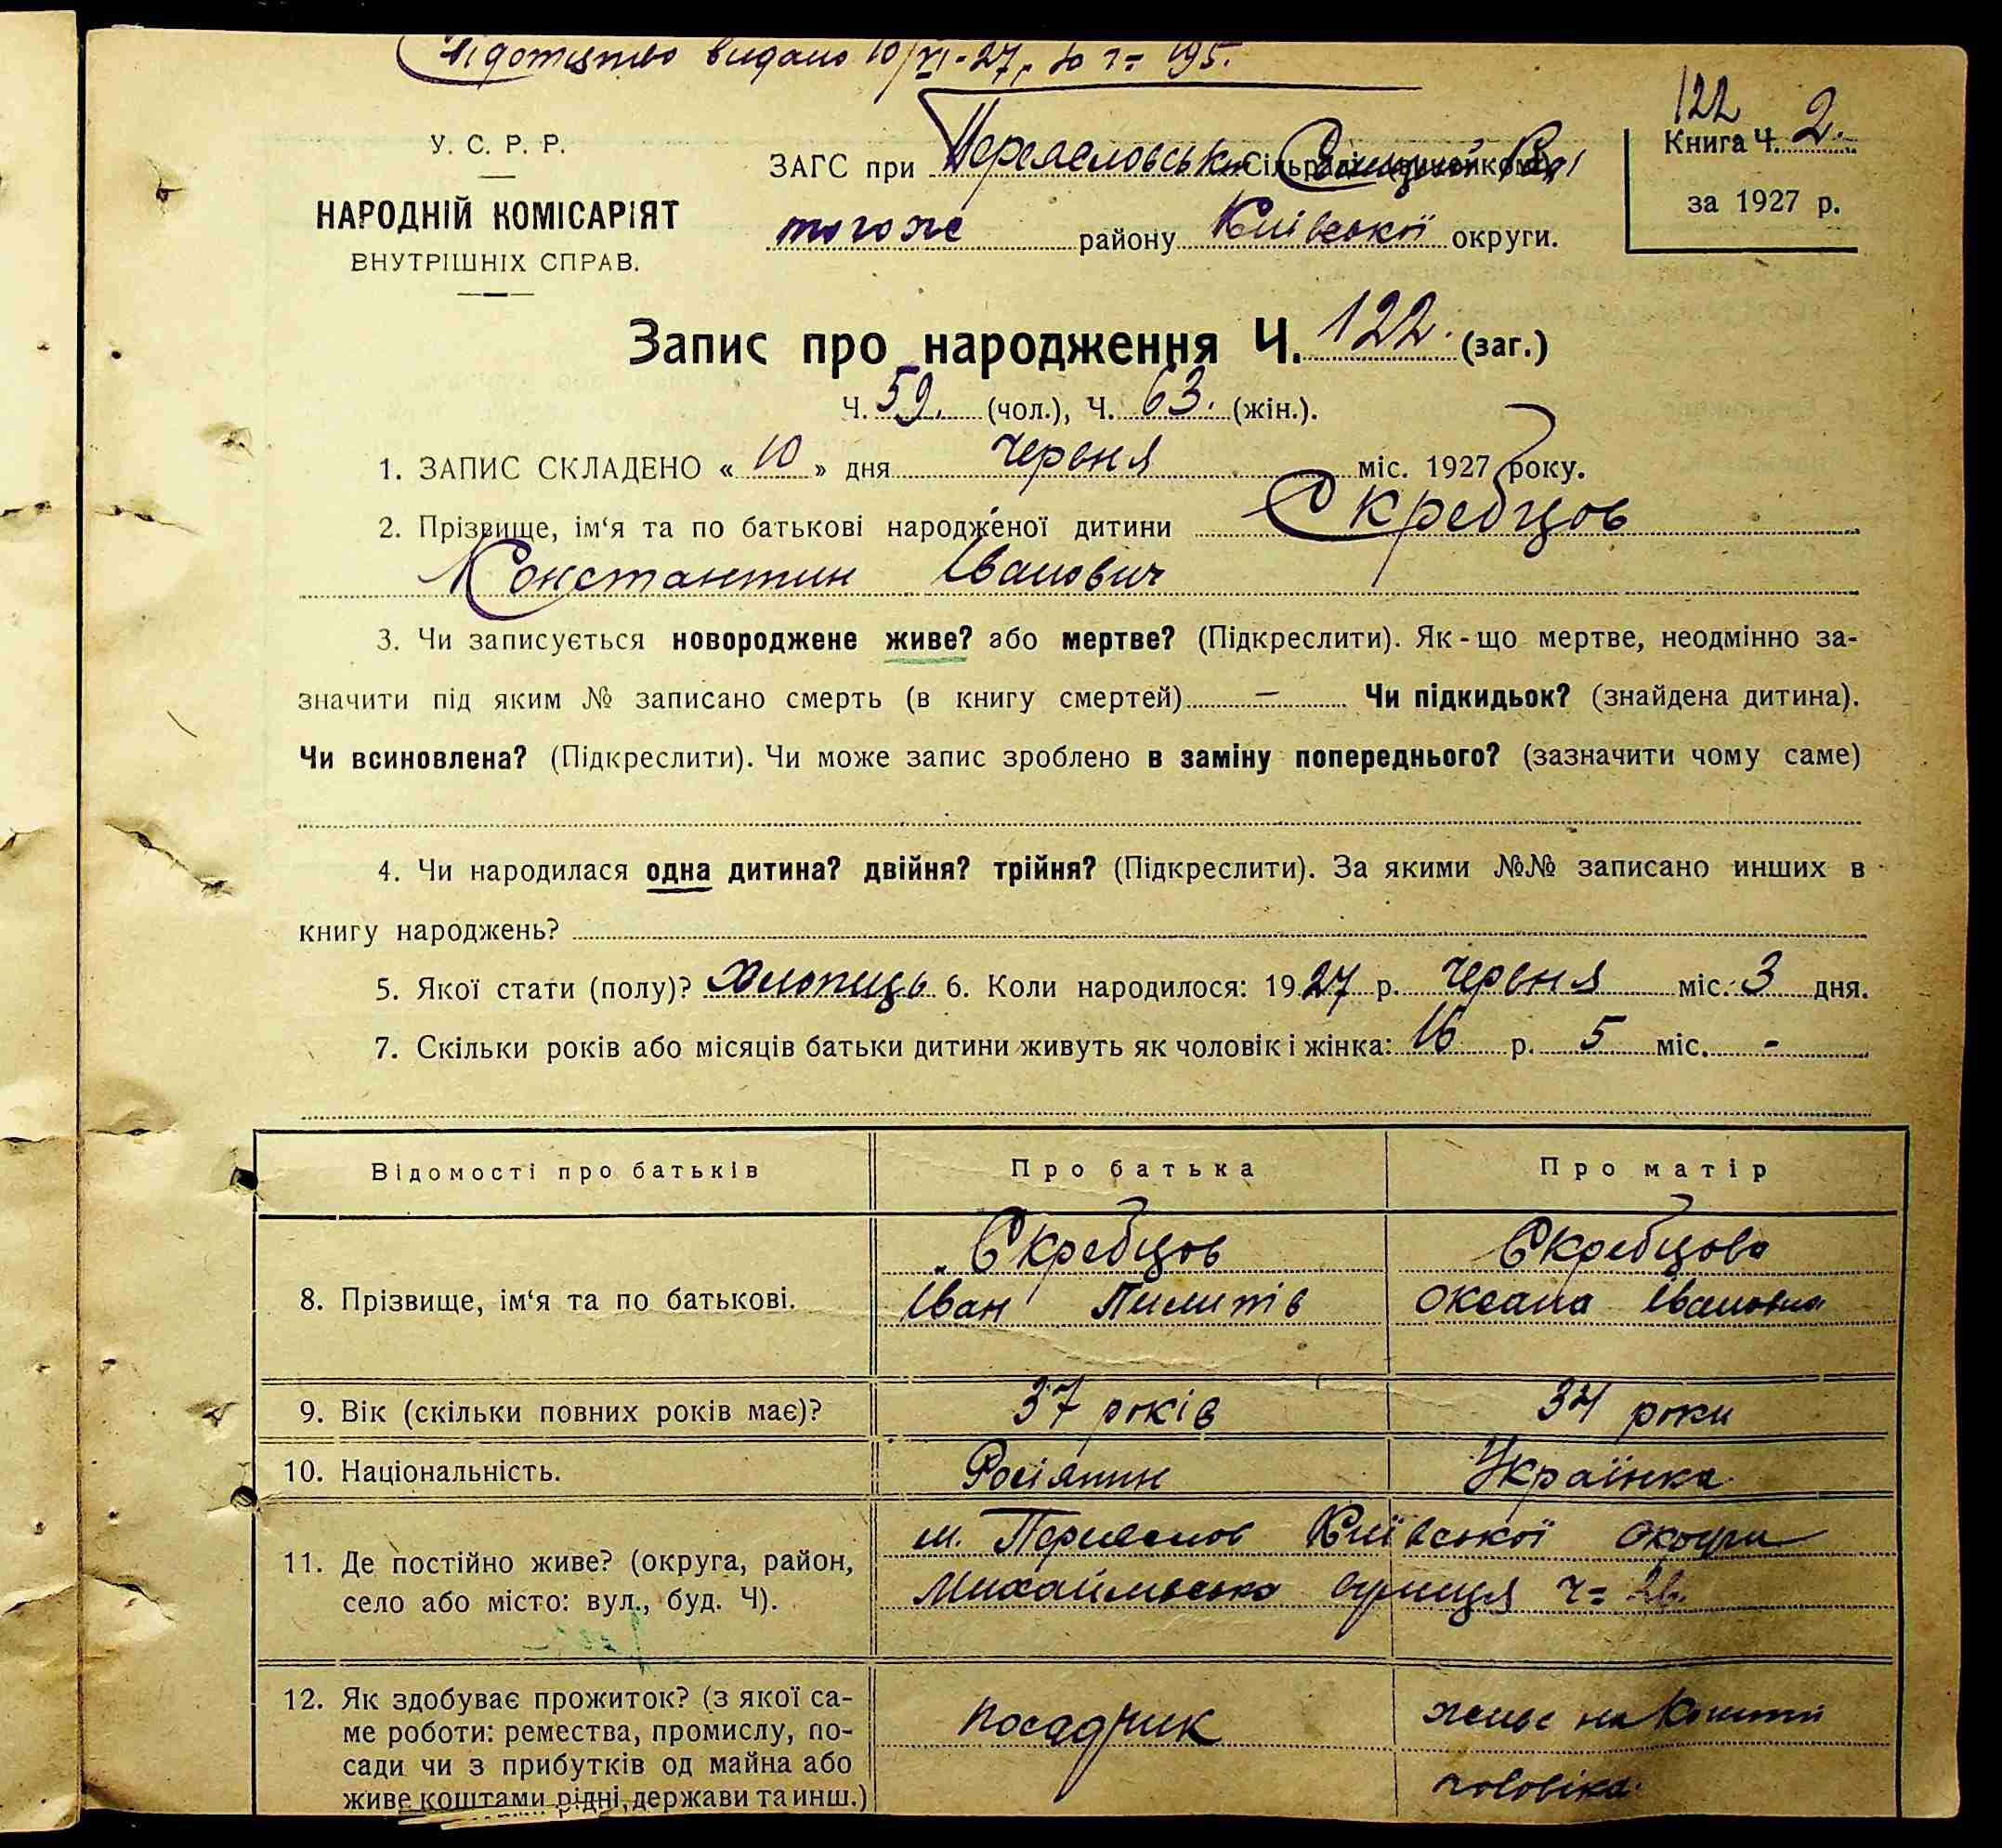 видано 10/VI-27 р. ч= 195.
122
У. С. Р. Р.
НАРОДНІЙ КОМІСАРІЯТ
ВНУТРІШНІХ СПРАВ.
ЗАГС при Переяславськ Сільраді
того же району Київської округи.
Книга Ч. 2.
за 1927 р.
Запис про народження Ч. 122. (заг.)
Ч. 59. (чол.), Ч. 63. (жін.).
1. ЗАПИС СКЛАДЕНО « 10 » дня червня міс. 1927 року.
2. Прізвище, ім‘я та по батькові народженої дитини Скребцов
Константин Іванович
3. Чи записується новороджене живе? або мертве? (Підкреслити). Як-що мертве, неодмінно за-
значити під яким № записано смерть (в книгу смертей) – Чи підкидьок? (знайдена дитина).
Чи всиновлена? (Підкреслити). Чи може запис зроблено в заміну попереднього? (зазначити чому саме)
4. Чи народилася одна дитина? двійня? трійня? (Підкреслити). За якими №№ записано инших в
книгу народжень?
5. Якої стати (полу)? Хлопець 6. Коли народилося: 1927 р. червня міс. 3 дня.
7. Скільки років або місяців батьки дитини живуть як чоловік і жінка: 16 р. 5 міс. -
Відомості про батьків Про батька Про матір
8. Прізвище, ім‘я та по батькові.
Скребцов
Іван Пилипів
Скребцова
Оксана Івановна
9. Вік (скільки повних років має)? 37 років 34 роки
10. Національність. Росіянин Українка
11. Де постійно живе? (округа, район,
село або місто: вул., буд. Ч).
м. Переяслов Київської округи
Михайлівська вулиця ч=
12. Як здобуває прожиток? (з якої са-
ме роботи: ремества, промислу, по-
сади чи з прибутків од майна або
живе коштами рідні, держави та инш.)
посадник
живе на кошти
чоловіка.